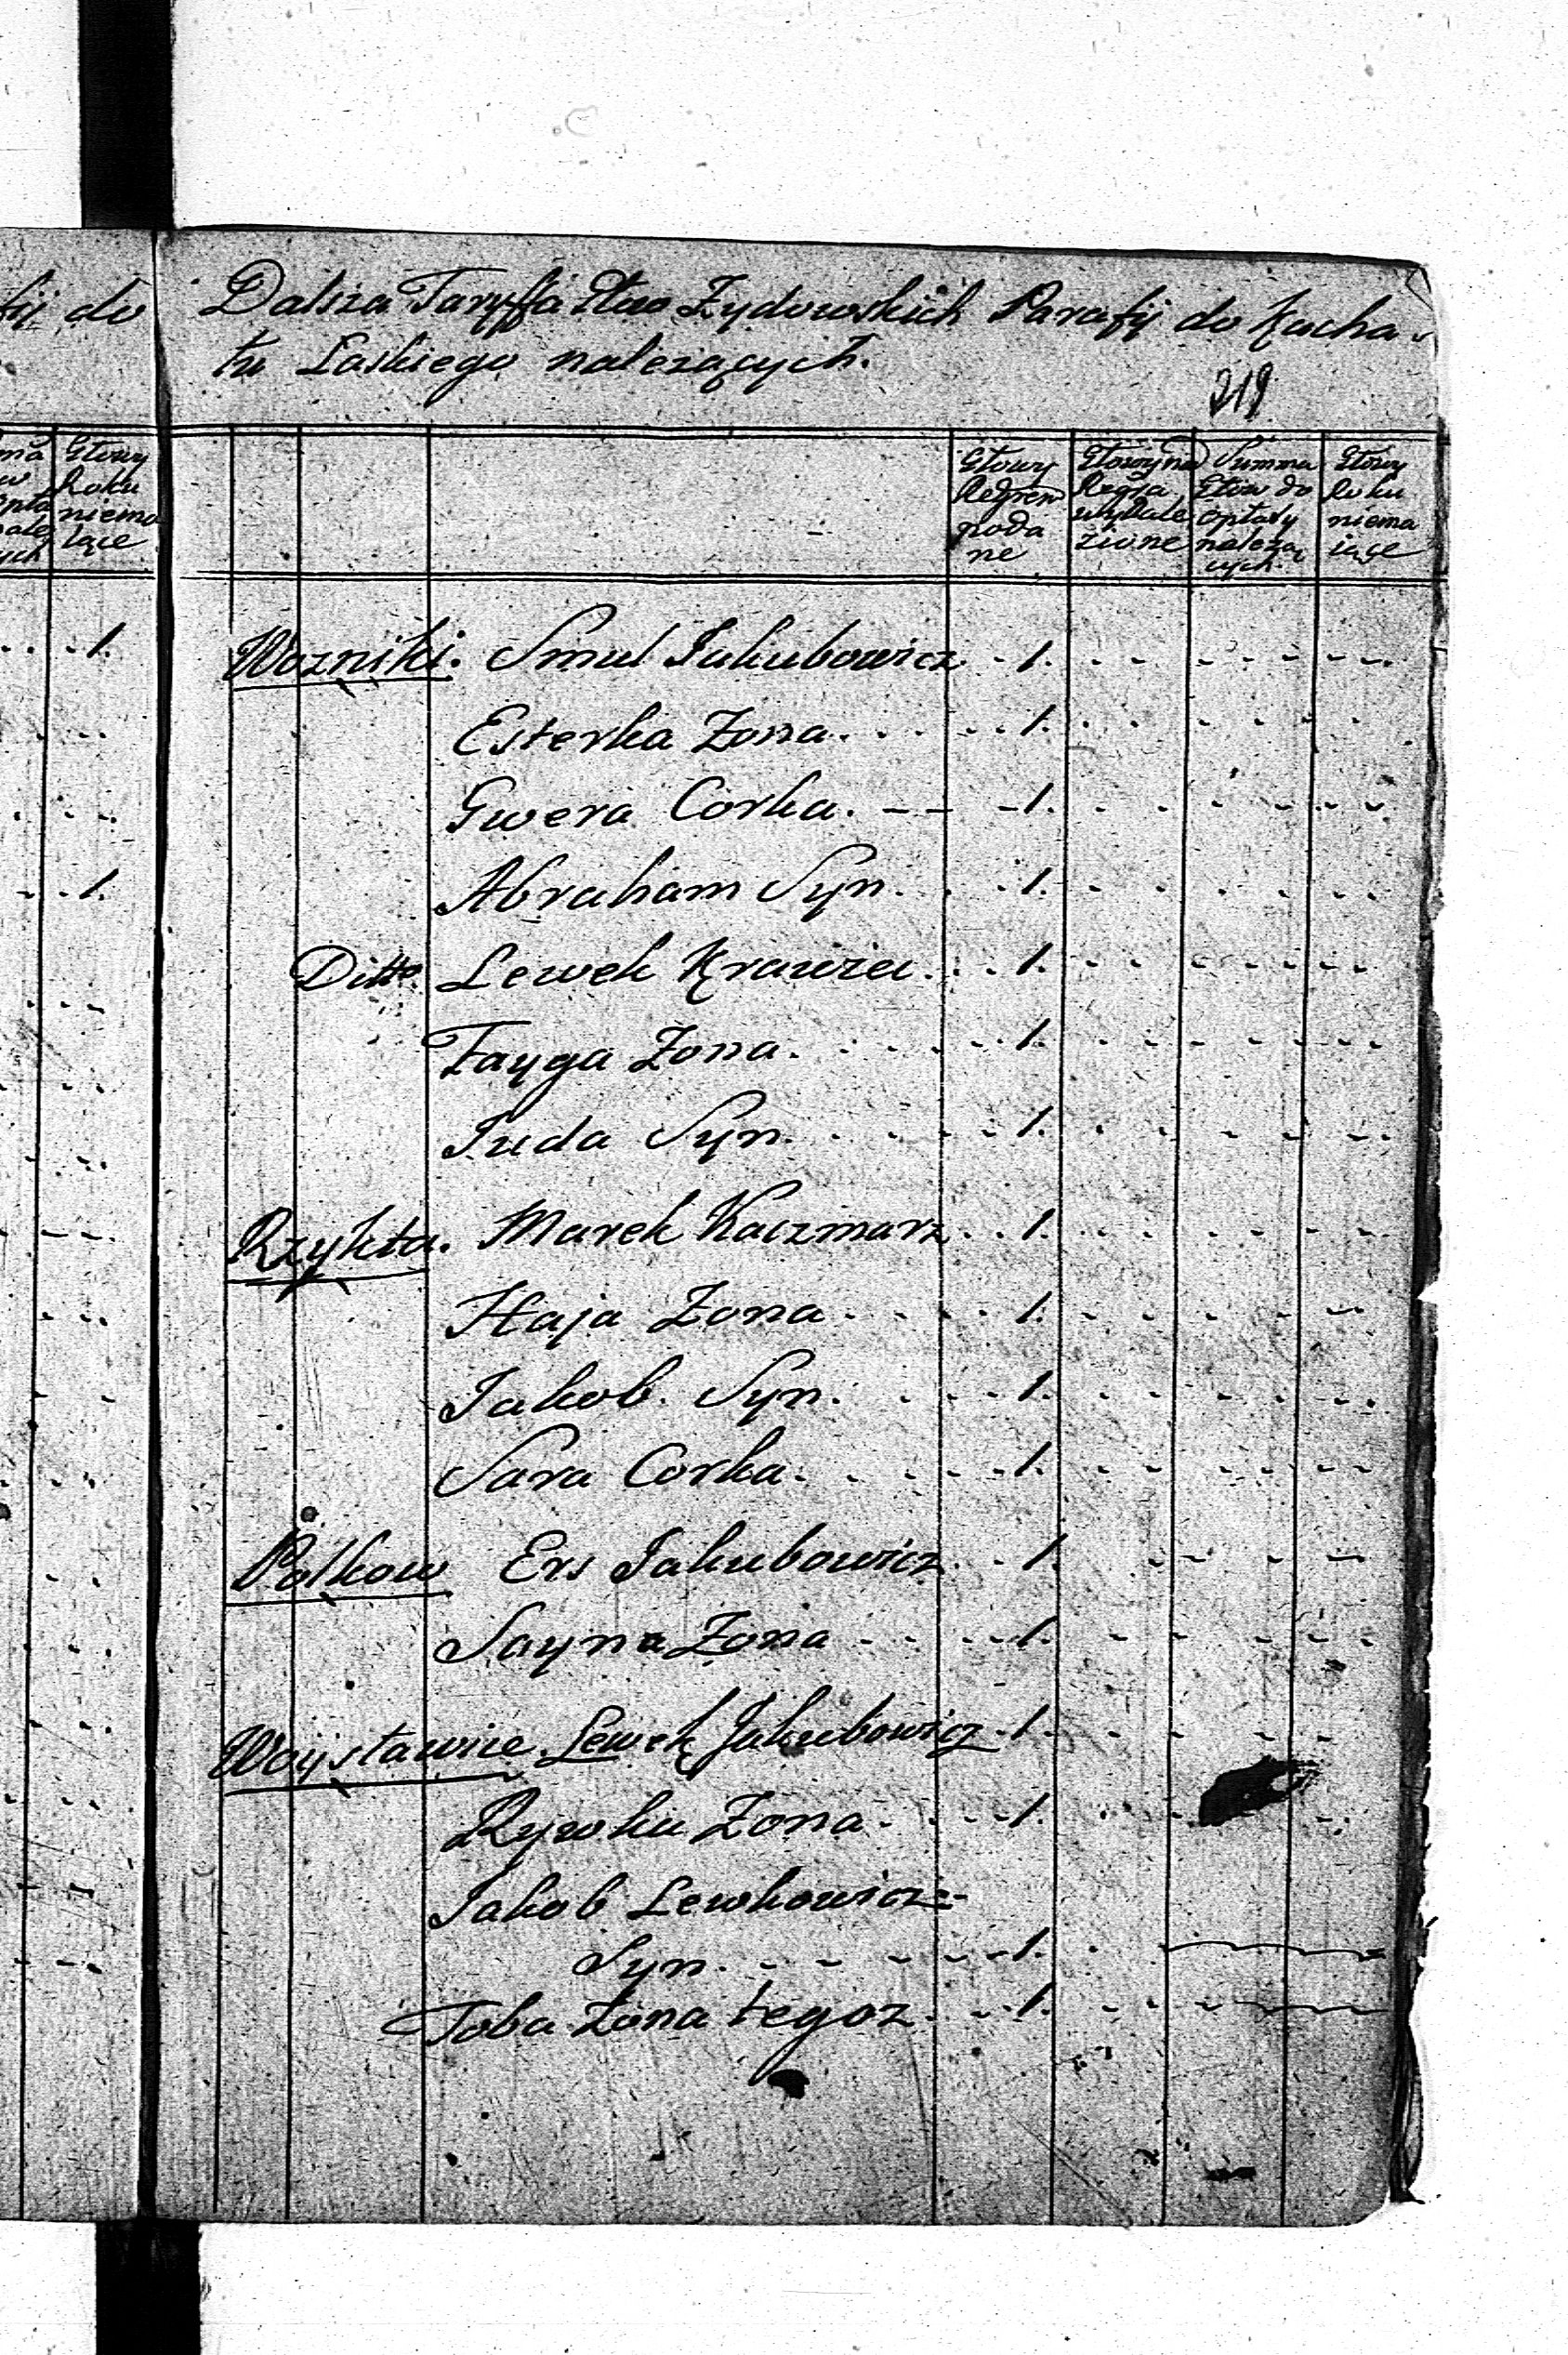 fij do
Dalsza Taryffa Głow Zydowskich Parafij do Kacha-
tu Laskiego nalezących.
219
Głowy
Roku
niema
iące
Głowy
Regrem
poda
ne
Głowy na
Regra
wynale
zione
Summa
Głow do
opłaty
należą
cych
Głowy
Roku
niema
iące
1.
1.
Wozniki. Smul Jakubowicz 1.
Esterka Zona 1.
Gwera Corka. 1.
Abraham Syn. 1.
Ditto Lewek Krawiec. 1.
Fayga Zona. 1.
Juda Syn. 1.
Rzykta. Marek Kaczmarz 1.
Haja Zona 1.
Jakob. Syn. 1.
Sara Corka. 1.
Polkow Ers Jakubowicz 1.
Sayna Zona 1.
Woysławice Lewek Jakubowicz 1.
Rywka Zona 1.
Jakob Lewkowicz
Syn. 1.
Toba Zona tegoz 1.